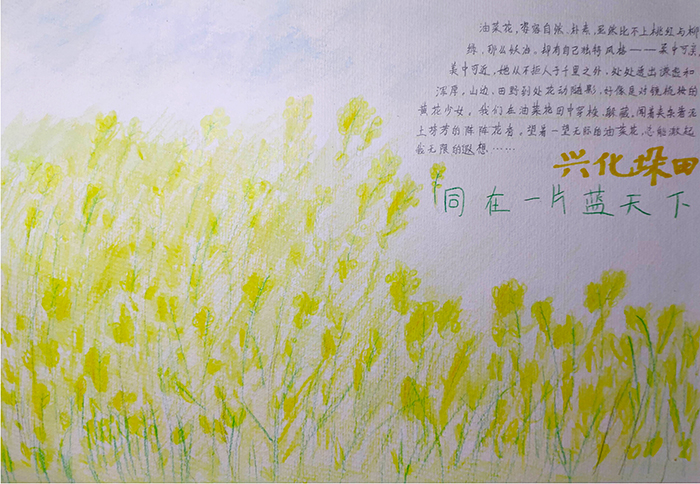 油菜花，姿容自然、朴素，虽然比不上桃红与柳
绿，那么妖冶。却有自己独特风格——美中可亲，
美中可近，她从不拒人于千里之外，处处透出潇洒和
浑厚，山边、田野到处花动随影，好像是对镜梳妆的
黄花少女，我们在油菜花田中穿梭、躲藏，闻着夹杂着泥
土芬芳的阵阵花香，望着一望无际的油菜花，总能激起
我无限的遐想……
兴化垛田
同在一片蓝天下